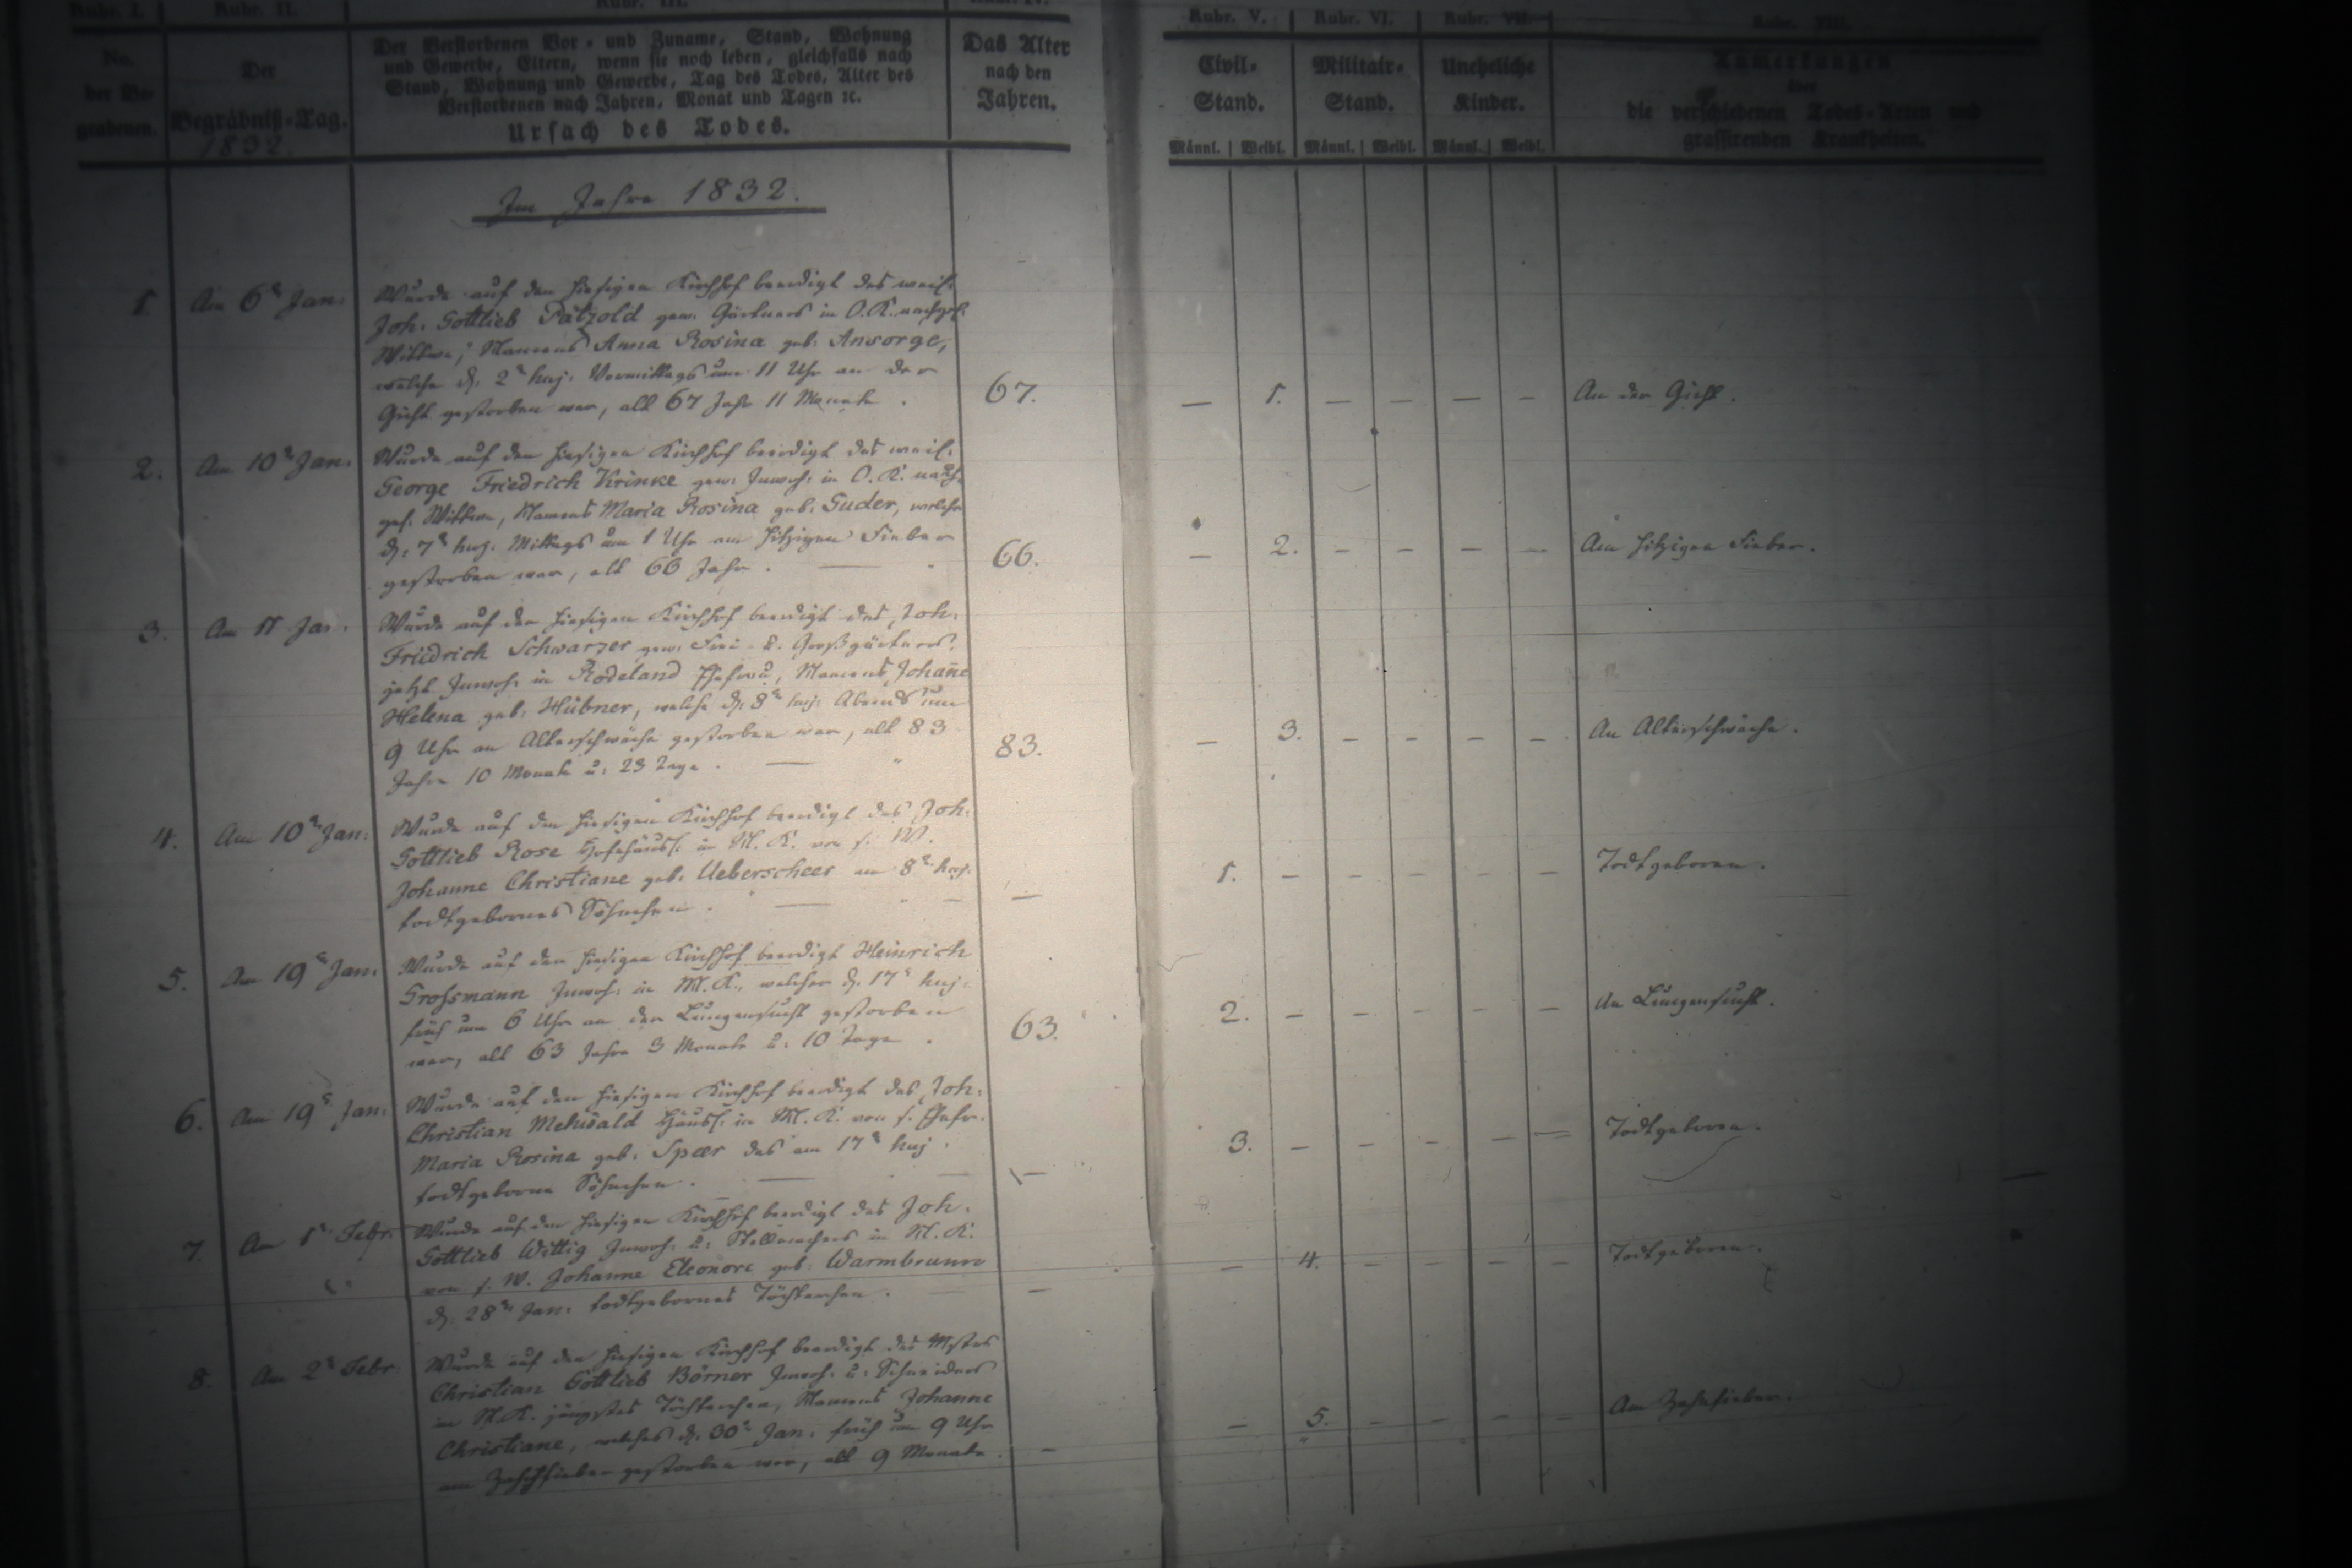 Rubr. I. Rubr. II. Rubr. III. Rubr. IV. Rubr. V. Rubr. VI. Rubr. VII. Rubr. VIII.
No.
der Be-
grabenen.
Der
Begräbniß-Tag.
1832.
Der Verstorbenen Vor- und Zuname, Stand, Wohnung
und Gewerbe, Eltern, wenn sie noch leben, gleichfalls nach
Stand, Wohnung und Gewerbe, Tag des Todes, Alter des
Verstorbenen nach Jahren, Monat und Tagen ꝛc.
Ursach des Todes.
Das Alter
nach den
Jahren.
Civil-
Stand.
Männl. Weibl.
Militair-
Stand.
Männl. Weibl.
Uneheliche
Kinder.
Männl. Weibl.
Anmerkungen
über
die verschiedenen Todes-Arten und
grassirenden Krankheiten.
Im Jahre 1832.
1. Am 6t Jan:
Wurde auf den hiesigen Kirchhof beerdigt des weil:
Joh: Gottlieb Pätzold gew: Gärtners in O. K. nachgel:
Wittwe, Namens Anna Rosina geb: Ansorge,
welche d: 2t huj: Vormittags um 11 Uhr an der
Gicht gestorben war, alt 67 Jahr 11 Monate.
67. — 1. — — — — An der Gicht.
2. Am 10t Jan:
Wurde auf den hiesigen Kirchhof beerdigt des weil:
George Friedrich Krinke gew: Inwoh: in O. K. nach-
gel: Wittwe, Namens Maria Rosina geb: Guder, welche
d: 7t huj: Mittags um 1 Uhr am hitzigen Fieber
gestorben war, alt 66 Jahr. —
66. — 2. — — — — Am hitzigen Fieber.
3. Am 11 Jan:
Wurde auf den hiesigen Kirchhof beerdigt des Joh:
Friedrich Schwarzer gew: Frei- u: Großgärtners,
jetzt Inwoh: in Rodeland Ehefrau, Namens Johañe
Helena geb: Hübner, welche d: 8t huj: Abends um
9 Uhr an Alterschwäche gestorben war, alt 83
Jahre 10 Monate u: 23 Tage. —
83. — 3. — — — — An Alterschwäche.
4. Am 10t Jan:
Wurde auf den hiesigen Kirchhof beerdigt des Joh:
Gottlieb Rose Hofehäusl: in M. K. von s: W.
Johanne Christiane geb: Ueberscheer am 8t huj:
todtgebornes Söhnchen. — —
— 1. — — — — — Todtgeboren.
5. Am 19t Jan:
Wurde auf den hiesigen Kirchhof beerdigt Heinrich
Grossmann Inwoh: in M. K., welcher d. 17t huj:
früh um 6 Uhr an der Lungensucht gestorben
war, alt 63 Jahre 3 Monate u: 10 Tage.
63. 2. — — — — — An Lungensucht.
6. Am 19t Jan:
Wurde auf den hiesigen Kirchhof beerdigt des Joh:
Christian Mehwald Häusl: in M. K. von s. Ehefr:
Maria Rosina geb: Spaer das am 17t huj:
todtgeborne Söhnchen. — —
— 3. — — — — — Todtgeboren.
7 Am 1t Febr:
Wurde auf den hiesigen Kirchhof beerdigt des Joh:
Gottlieb Wittig Inwoh: u: Stellmachers in M. K.
von s. W. Johanne Eleonore geb: Warmbrunn
d. 28t Jan: todtgebornes Töchterchen. —
— — 4. — — — — Todtgeboren.
8. Am 2t Febr:
Wurde auf den hiesigen Kirchhof beerdigt des Mstrs
Christian Gottlieb Börner Inwoh: u: Schneiders
in M. K. jüngstes Töchterchen, Namens Johanne
Christiane, welches d: 30t Jan: früh um 9 Uhr
am Zahnfieber gestorben war, alt 9 Monate.
— — 5. — — — — Am Zahnfieber.